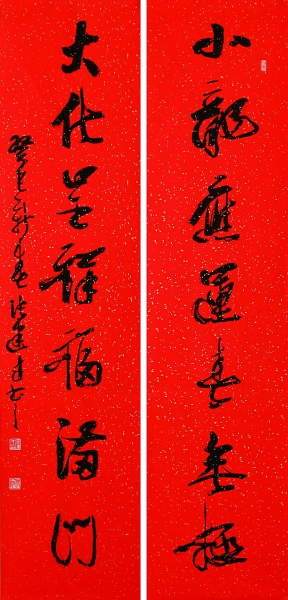 小龍應運春無極
大化呈祥福滿門
癸巳新春